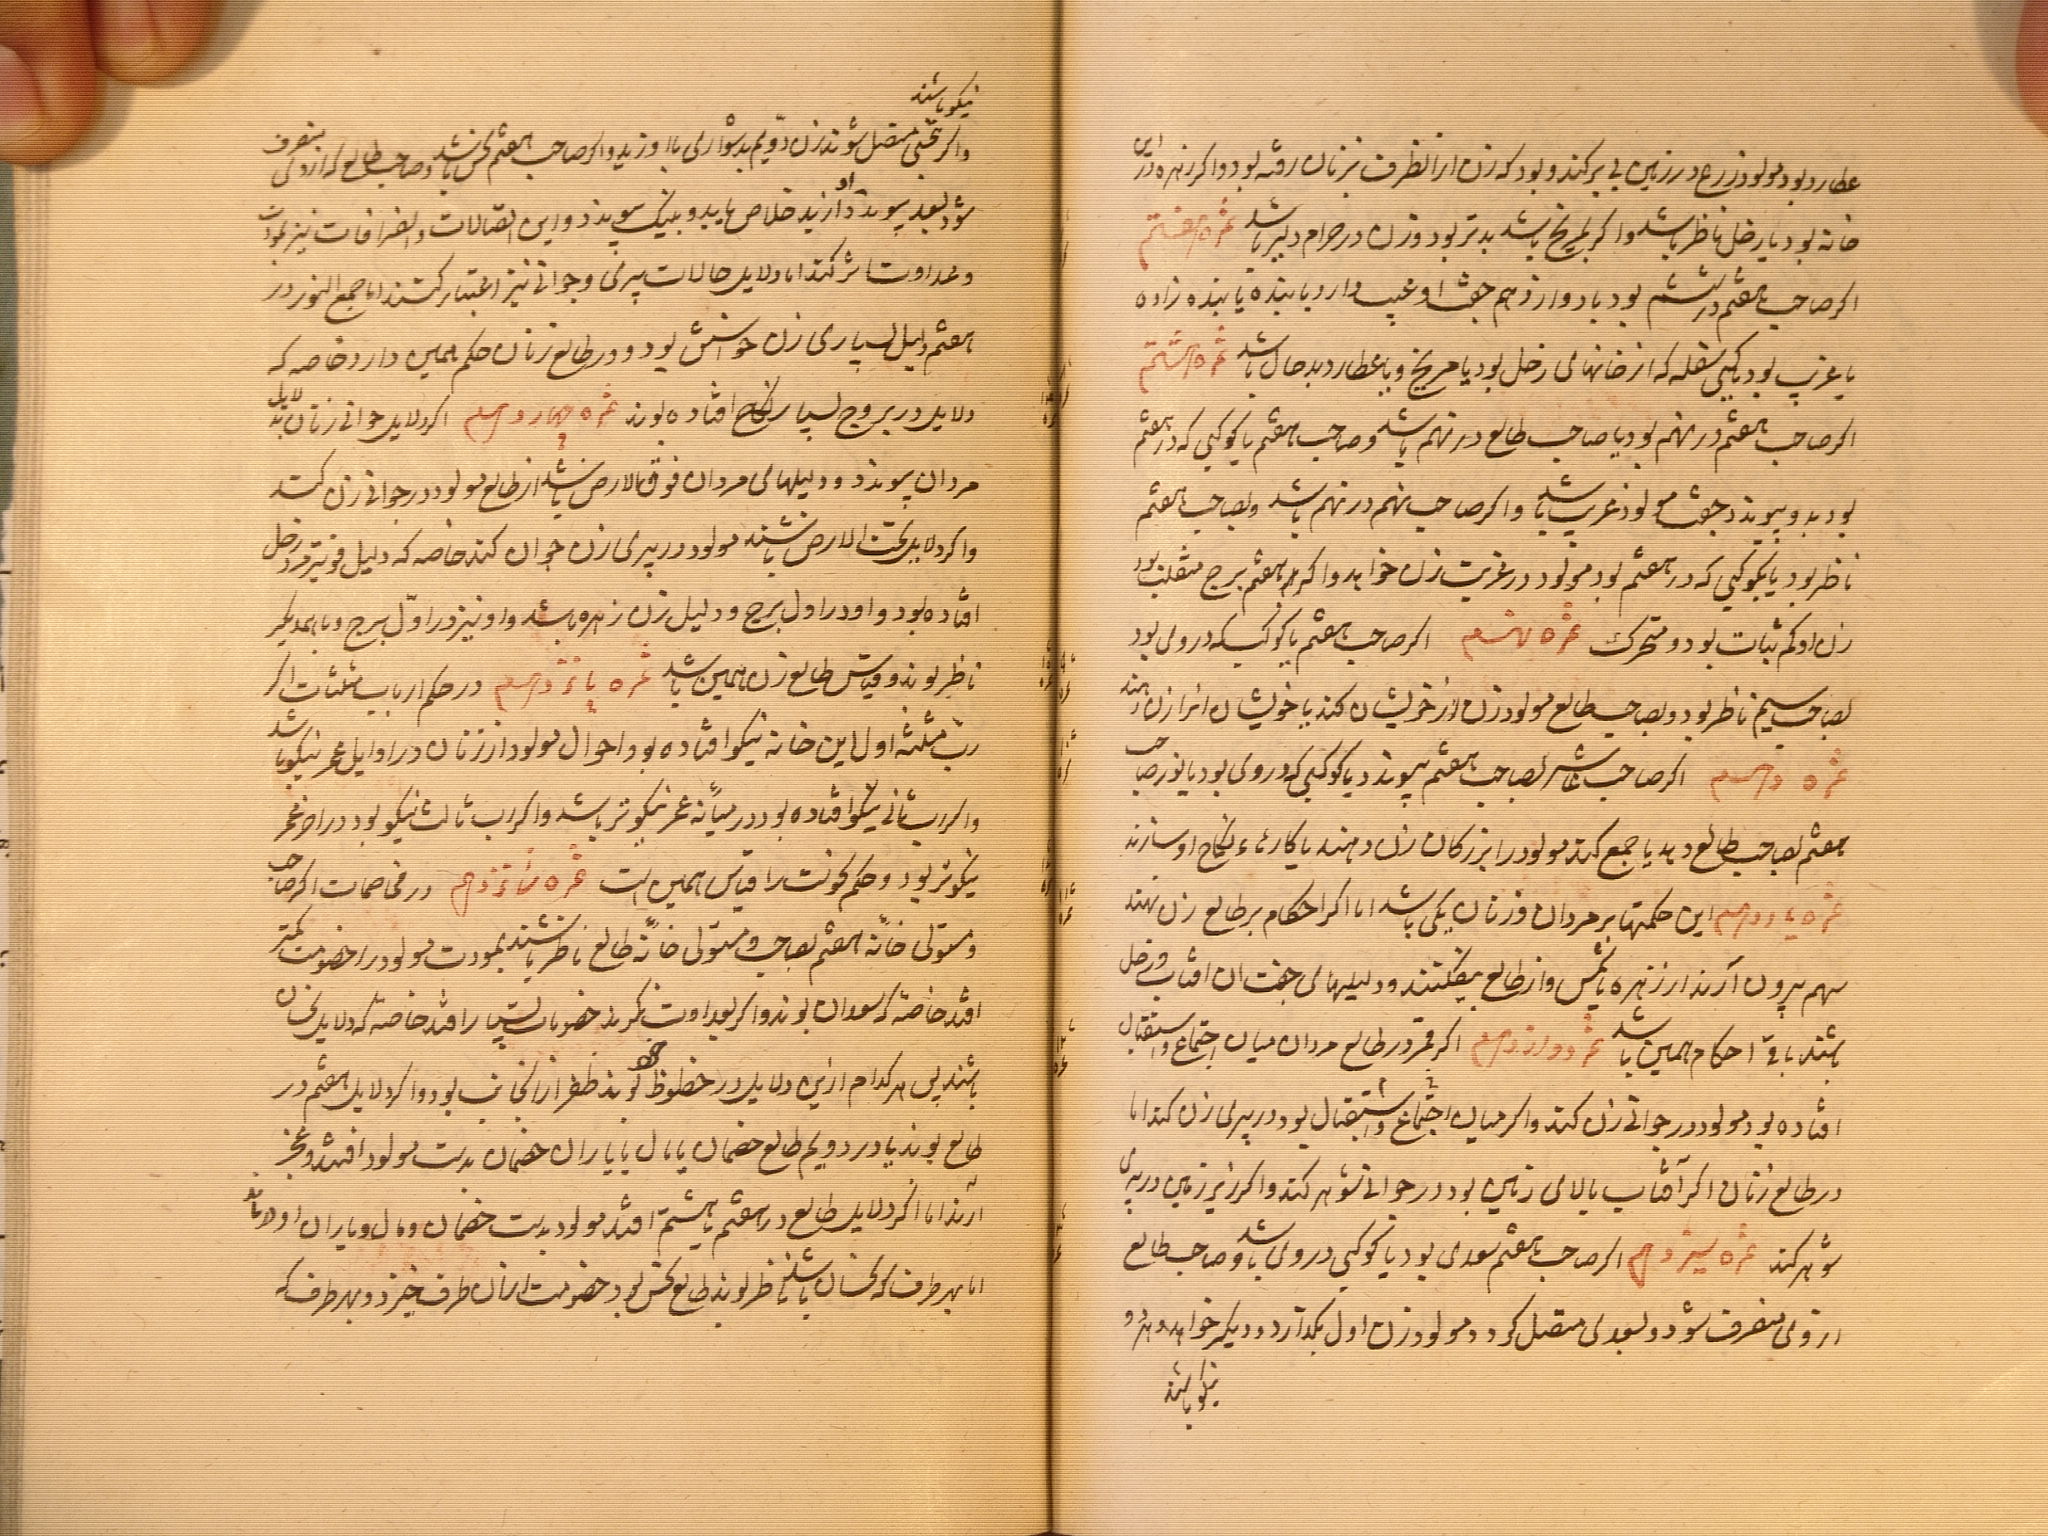 عطارد بود مولود زرع در زمین بی بر کند و بود که زن از انطرف بزنان رفته بود و اکر زهره در این
خانه بود یا زحل ناظر باشد و اکر بمریخ باشد بدتر بود و زن در حرام دلیر باشد ثمره هفتم
اکر صاحب هفتم در ششم بود یا دوازدهم جفت او عیب دارد یا بنده یا بنده زاده
یا غریب بود یا کسی سفله که از خانهای زحل بود یا مریخ و یا عطارد بد حال باشد ثمره هشتم
اکر صاحب هفتم در نهم بود یا صاحب طالع در نهم باشد و صاحب هفتم یا کوکبی که در هفتم
بود بدو پیوندد جفت مولود غریب باشد و اکر صاحب نهم در نهم باشد و بصاحب هفتم
ناظر بود یا بکوکبی که در هفتم بود مولود در غربت زن خواهد و اکر هفتم برج منقلب بود
زن او کم ثبات بود و متحرک ثمره نهم اکر صاحب هفتم یا کوکبیکه در وی بود
بصاحب سیم ناظر بود و بصاحب طالع مولود زن از خویشان کند یا خویشان انرا زن دهند
ثمره دهم اکر صاحب عاشر بصاحب هفتم پیوندد یا کوکبی که در وی بود یا نور صاحب
هفتم بصاحب طالع دهد یا جمع کند مولود را بزرکان زن دهند یا کار نکاح او سازند
ثمره یازدهم این حکمها بر مردان و زنان یکی باشد اما اکر احکام بر طالع زن نهند
سهم بیرون آرند از زهره تا شمس و از طالع بیفکنند و دلیلهای جفت ان افتاب و زحل
باشند باقی احکام همین باشد ثمره دوازدهم اکر قمر در طالع مردان میان اجتماع و استقبال
افتاده بود مولود در جوانی زن کند و اکر میان اجتماع و استقبال بود در پیری زن کند اما
در طالع زنان اکر آفتاب بالای زمین بود در جوانی شوهر کند و اکر زیر زمین در پیری
شوهر کند ثمره سیزدهم اکر صاحب هفتم سعدی بود یا کوکبی در وی باشد و صاحب طالع
از وی منصرف شود و بسعدی متصل کردد مولود زن اول بکذارد و دیکر خواهد و هر دو
نیکو باشند
نیکو باشند
و اکر بنحسی متصل شوند زن دویم بدشواری با او زید و اکر صاحب هفتم نحس باشد و صاحب طالع که از وی منصرف
شود بسعد پیوندد از بد خلاص یابد و بنیک پیوندد و این اتصالات و انصرافات نیز بمودت
و عداوت اثر کند اما دلایل حالات پیری و جوانی نیز اعتبار کنند اما جمع النور در
هفتم دلیل بسیاری زن خواستن بود و در طالع زنان حکم همین دارد خاصه که
دلایل در بروج بسیار نکاح افتاده بوند ثمره چهاردهم اکر دلایل جوانی زنان بدلایل
مردان پیوندد و دلیلهای مردان فوق الارض باشد از طالع مولود در جوانی زن کند
و اکر دلایل تحت الارض باشند مولود در پیری زن جوان کند خاصه که دلیل قویتر زحل
افتاده بود و او در اول برج و دلیل زن زهره باشد و او نیز در اول برج و با یکدیکر
ناظر بوند و قیاس طالع زن همین باشد ثمره پانزدهم در حکم ارباب مثلثات اکر
رب مثلثه اول این خانه نیکو افتاده بود احوال مولود از زنان در اوایل عمر نیکو باشد
و اکر رب ثانی نیکو افتاده بود در میانه عمر نیکوتر باشد و اکر رب ثالث نیکو بود در اخر عمر
نیکوتر بود و حکم کونت را قیاس همین است ثمره شانزدهم در مخاصمات اکر صاحب
و مستولی خانه هفتم بصاحب و مستولی خانه طالع ناظر باشند بمودت مولود را خصومت کمتر
افتد خاصه که سعدان بوند و اکر بعداوت نکرند خصومات بسیار افتد خاصه که دلایل نحسان
باشند پس هر کدام ازین دلایل در حظوظ خود بوند ظفر از انجانب بود و اکر دلایل هفتم در
طالع بوند یا در دویم طالع خصمان یا مال یا یاران خصمان بدست مولود افتند و عجز
ارند اما اکر دلایل طالع در هفتم یا هشتم افتد مولود بدست خصمان و مال و یاران او
اما بهر طرف که نحسان باشند ناظر بوند طالع نحس بود خصومت از ان طرف خیزد و بهر طرف که